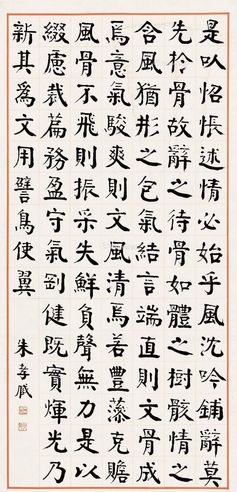 是㕥怊悵述情必始乎風沈吟鋪辭莫
先扵骨故辭之待骨如體之樹骸情之
含風猶形之包氣結言端直則文骨成
焉意氣駿爽則文風清焉若豐藻克贍
風骨不飛則振采失鮮負聲無力是以
綴慮裁篇務盈守氣剛健既實煇光乃
新其爲文用譬鳥使翼 朱孝臧